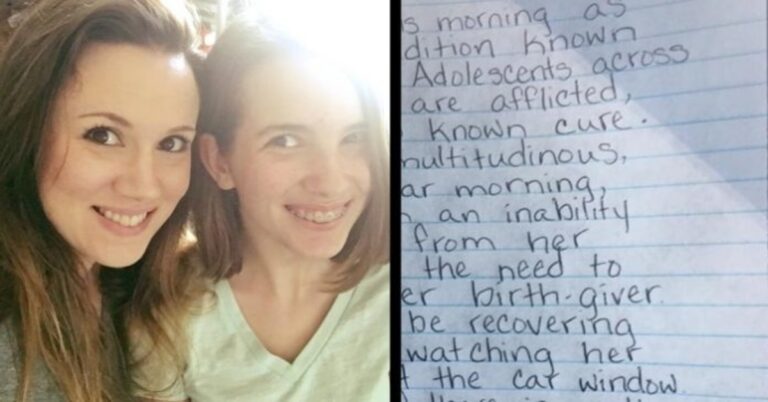 s morning as
dition known
Adolescents across
are afflicted,
known cure.
multitudinous,
ar morning,
an inability
from her
the need to
er birth-giver.
be recovering
watching her
the car window.